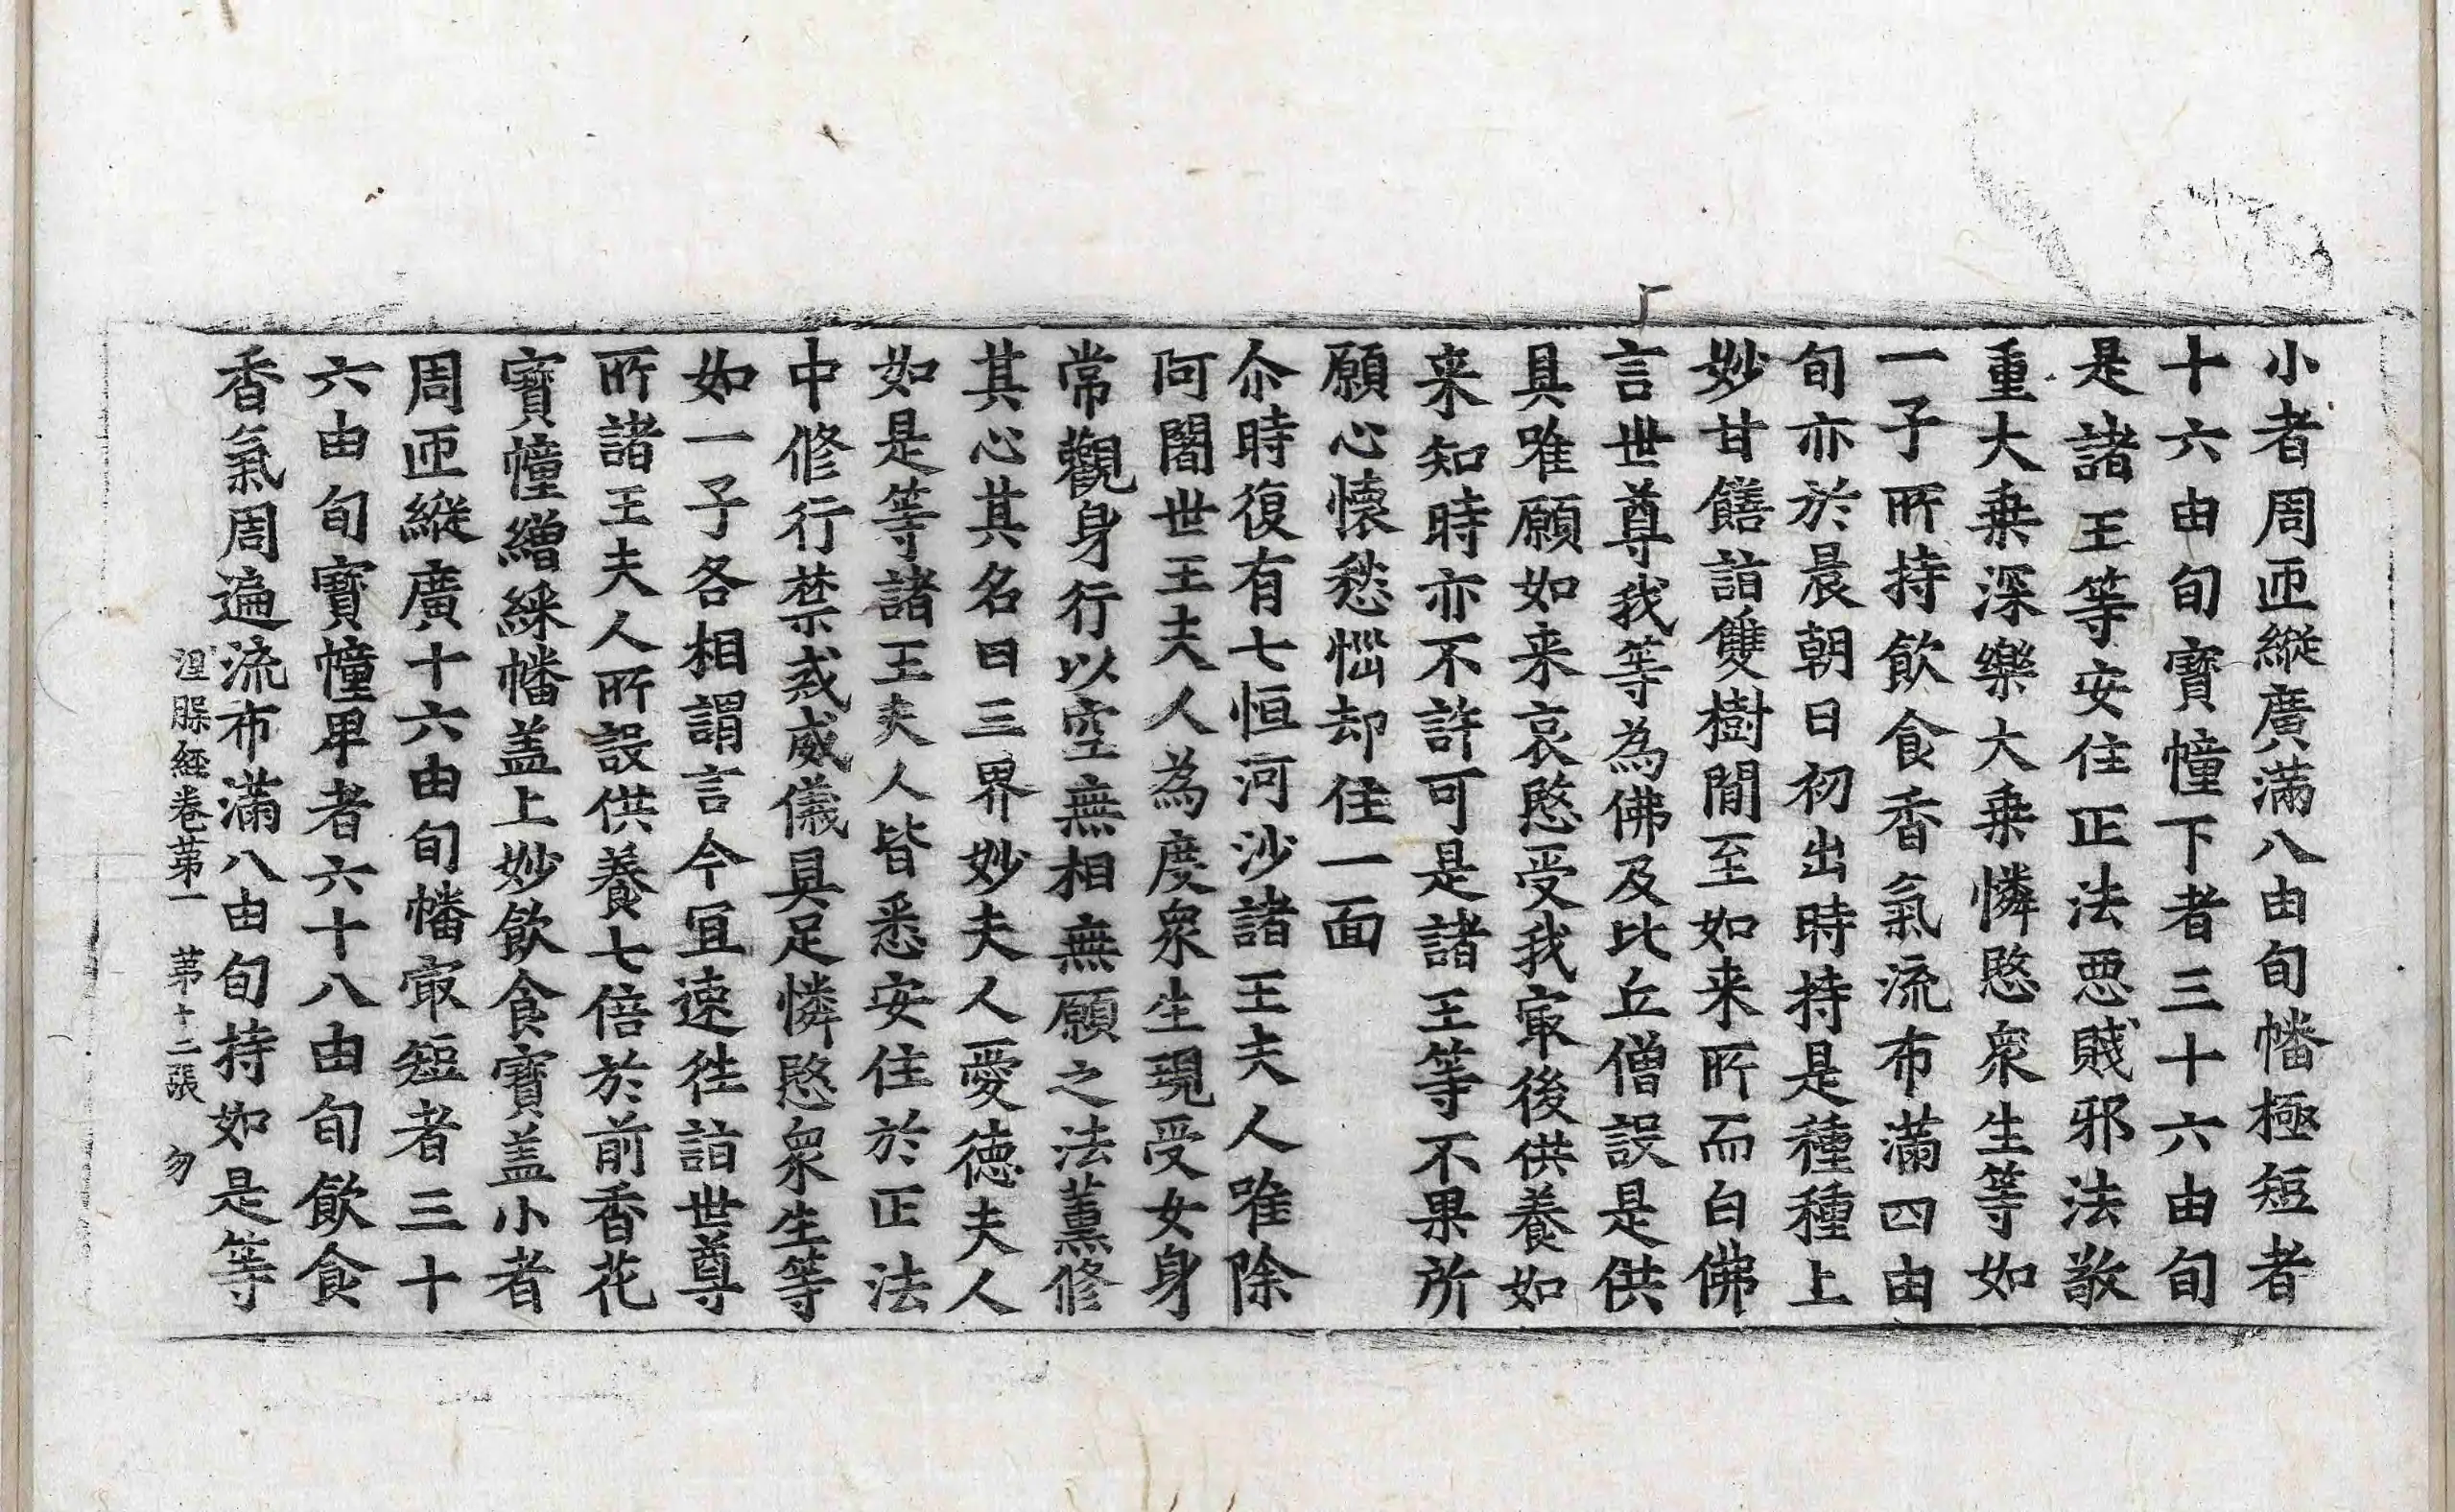 小者周匝縱廣滿八由旬幡極短者
十六由旬寶幢下者三十六由旬
是諸王等安住正法惡賤邪法敬
重大乗深樂大乗憐愍衆生等如
一子所持飲食香氣流布滿四由
旬亦於晨朝日初出時持是種種上
妙甘饍詣雙樹閒至如来所而白佛
言世尊我等為佛及比丘僧設是供
具唯願如来哀愍受我㝡後供養如
来知時亦不許可是諸王等不果所
願心懷愁惱却住一面
尒時復有七恒河沙諸王夫人唯除
阿闍世王夫人為度衆生現受女身
常觀身行以空無相無願之法薰修
其心其名曰三界妙夫人愛德夫人
如是等諸王夫人皆悉安住於正法
中修行禁戒威儀具足憐愍衆生等
如一子各相謂言今冝速徃詣世尊
所諸王夫人所設供養七倍於前香花
寶幢繒綵幡盖上妙飲食寶盖小者
周匝縱廣十六由旬幡㝡短者三十
六由旬寶幢卑者六十八由旬飲食
香氣周遍流布滿八由旬持如是等
涅槃經卷苐一 苐十二張 勿